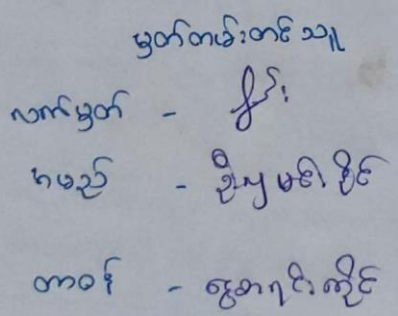 မှတ်တမ်းတင်သူ
လက်မှတ် -
အမည် - ဦးမျိုးမင်းနိုင်
တာဝန် - ငွေစာရင်းကိုင်